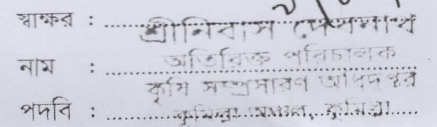 স্বাক্ষর : শ্রীনিবাস দেবনাথ
নাম : অতিরিক্ত পরিচালক
কৃষি সম্প্রসারণ অধিদপ্তর
পদবি : কুমিল্লা অঞ্চল, কুমিল্লা।